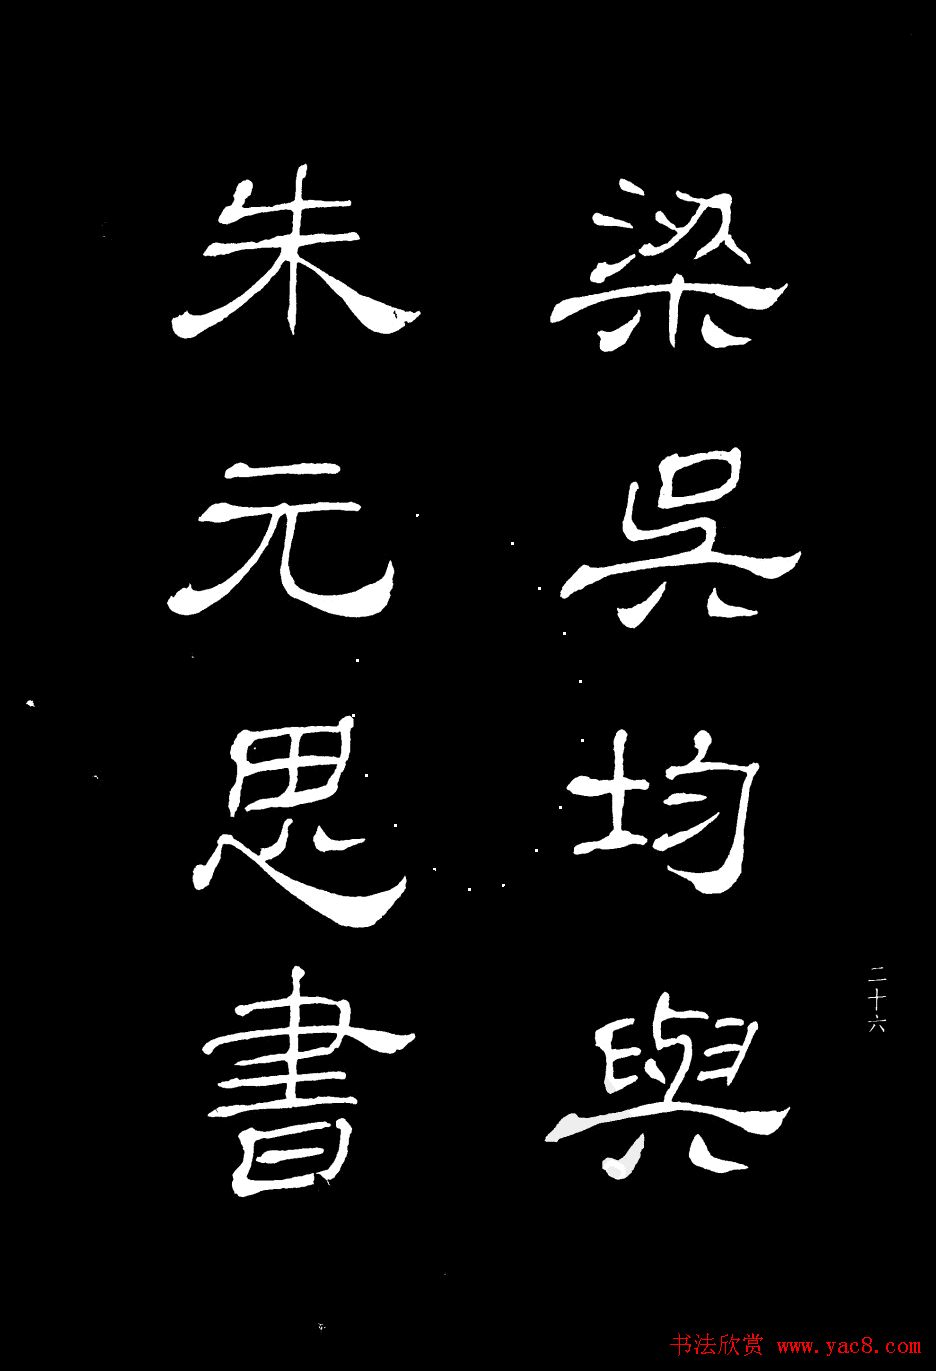 梁吳均與
朱元思書
二十六
书法欣赏 www.yac8.com